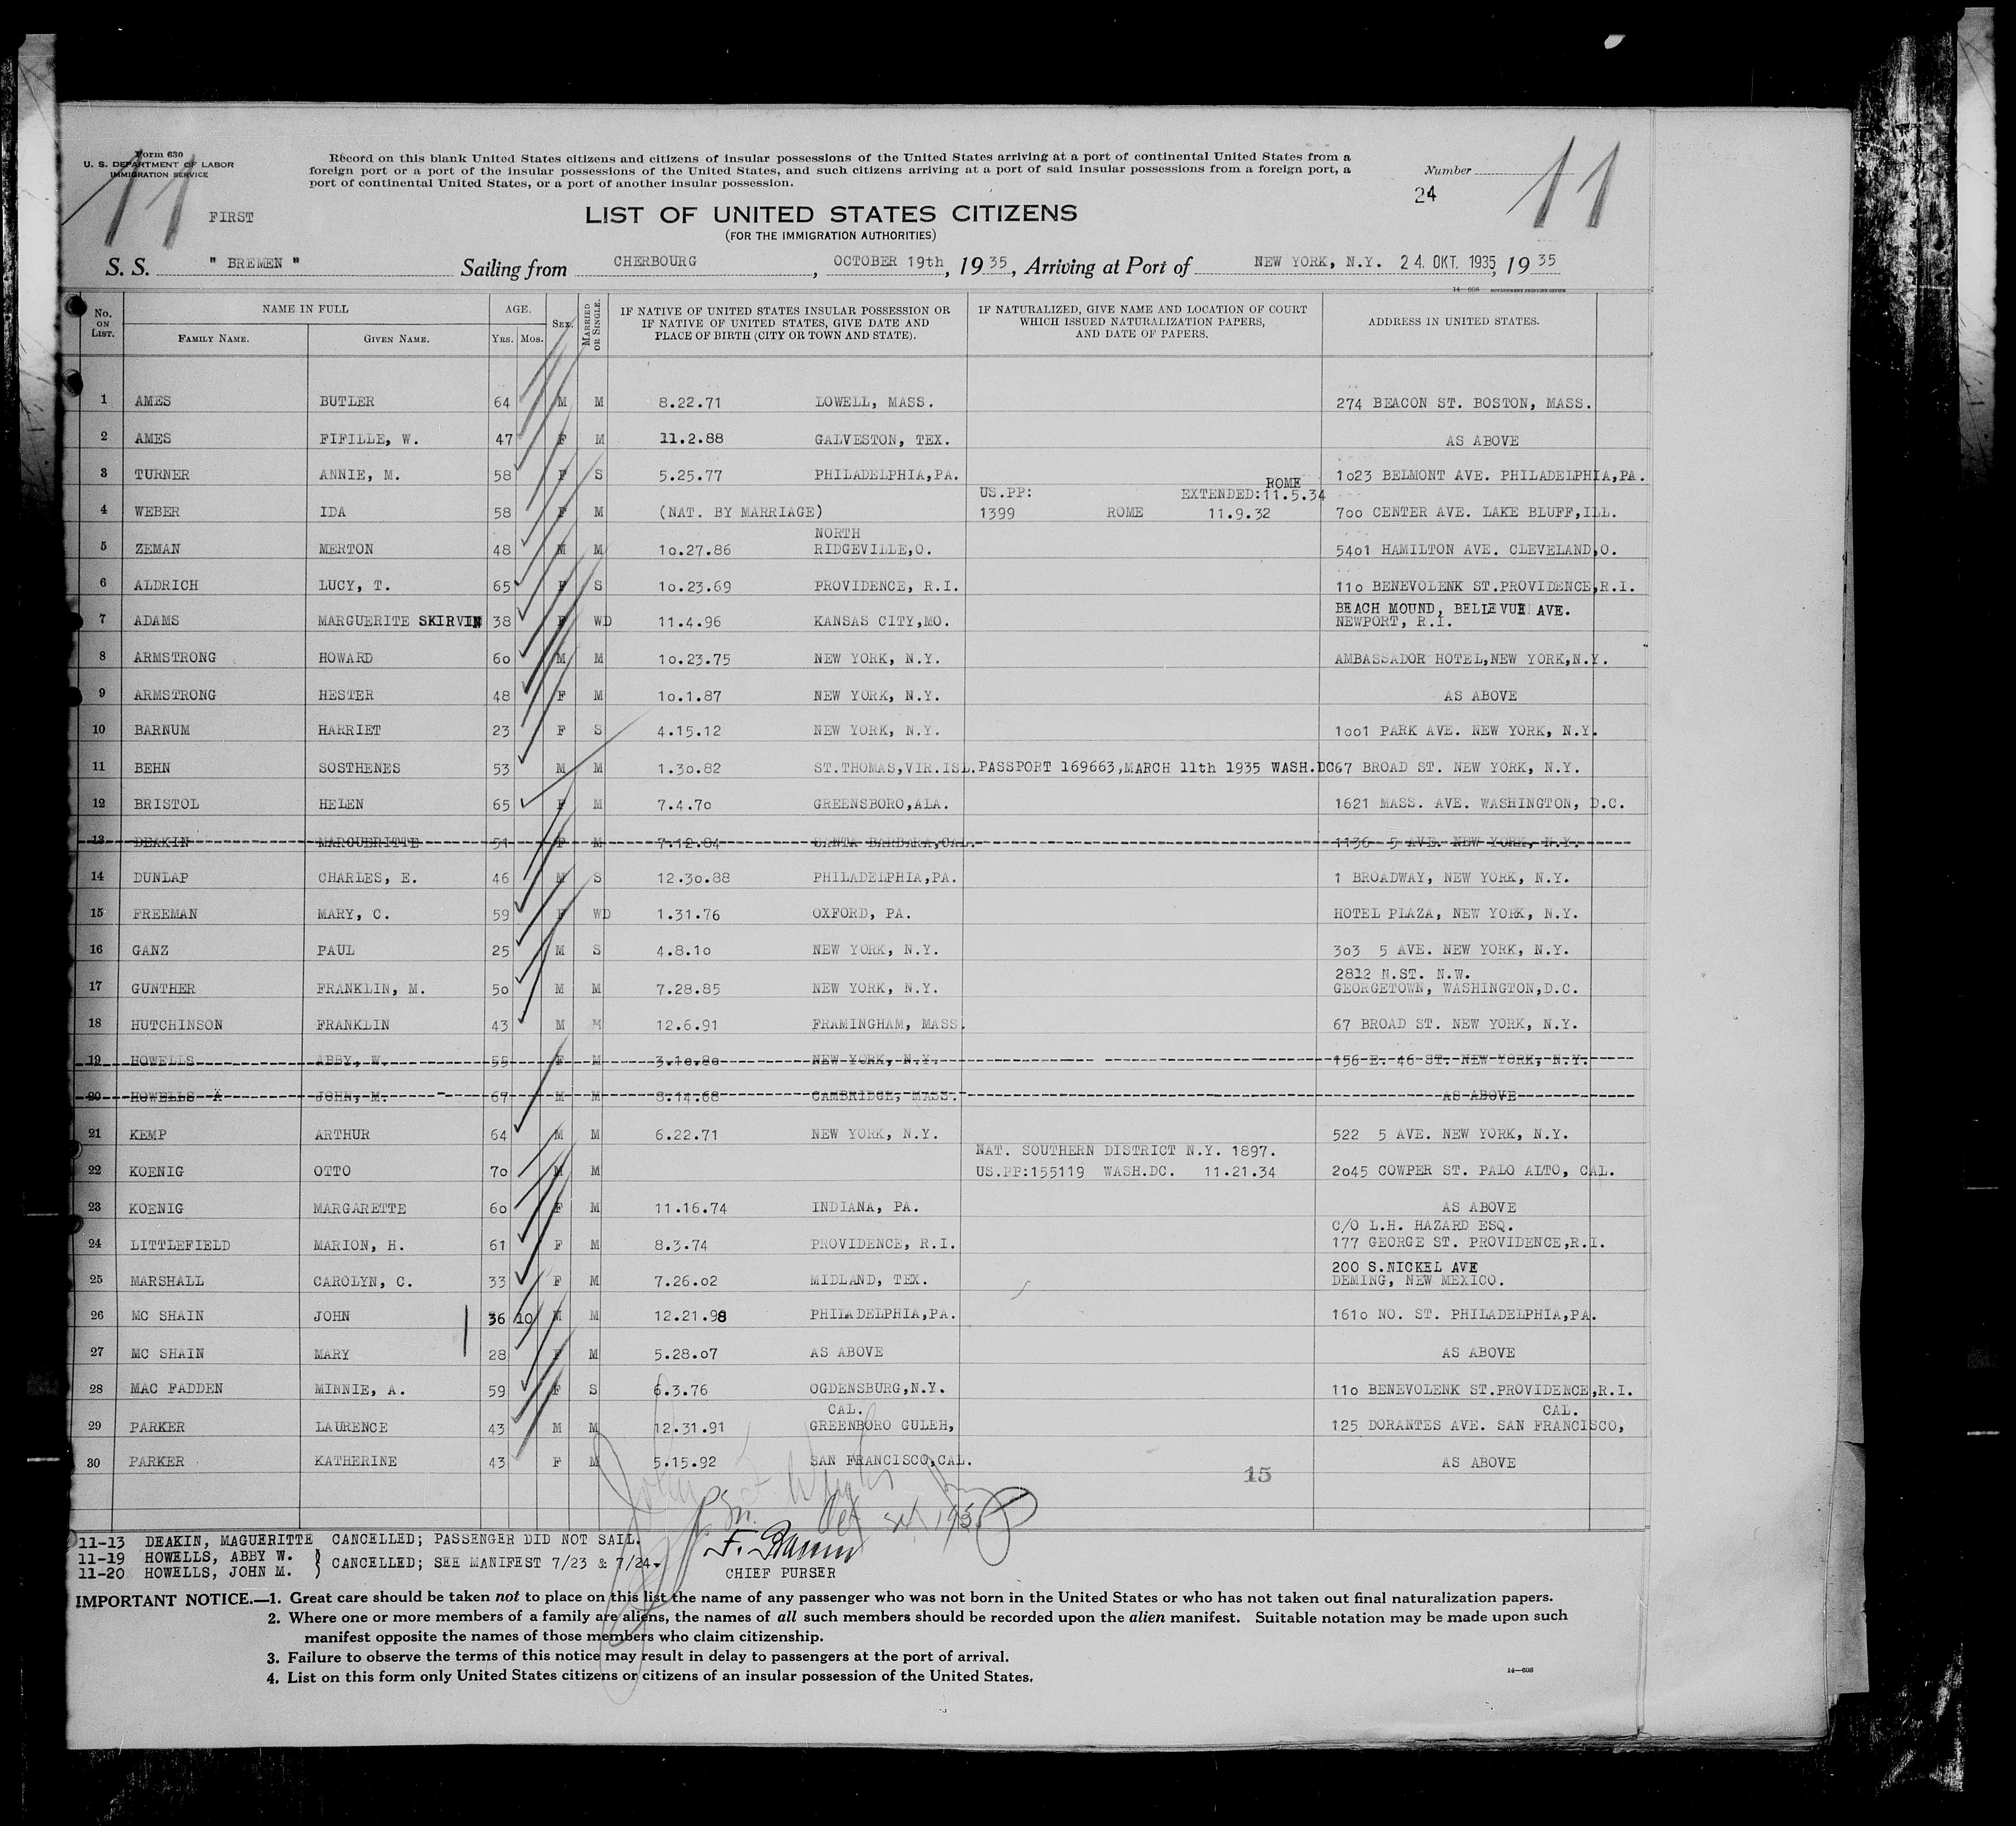 Form 630
U. S. DEPARTMENT OF LABOR
IMMIGRATION SERVICE
11
FIRST
Record on this blank United States citizens and citizens of insular possessions of the United States arriving at a port of continental United States from a
foreign port or a port of the insular possessions of the United States, and such citizens arriving at a port of said insular possessions from a foreign port, a
port of continental United States, or a port of another insular possession.
Number
24
11
LIST OF UNITED STATES CITIZENS
(FOR THE IMMIGRATION AUTHORITIES)
S. S. " BREMEN " Sailing from CHERBOURG, OCTOBER 19th, 1935, Arriving at Port of NEW YORK, N.Y. 24. OKT. 1935, 1935
14—608 GOVERNMENT PRINTING OFFICE
No. ON LIST. NAME IN FULL FAMILY NAME. GIVEN NAME. AGE. YRS. MOS. SEX. MARRIED OR SINGLE. IF NATIVE OF UNITED STATES INSULAR POSSESSION OR IF NATIVE OF UNITED STATES, GIVE DATE AND PLACE OF BIRTH (CITY OR TOWN AND STATE). IF NATURALIZED, GIVE NAME AND LOCATION OF COURT WHICH ISSUED NATURALIZATION PAPERS, AND DATE OF PAPERS. ADDRESS IN UNITED STATES.
1 AMES BUTLER 64 M M 8.22.71 LOWELL, MASS. 274 BEACON ST. BOSTON, MASS.
2 AMES FIFILLE, W. 47 F M 11.2.88 GALVESTON, TEX. AS ABOVE
3 TURNER ANNIE, M. 58 F S 5.25.77 PHILADELPHIA,PA. 1o23 BELMONT AVE. PHILADELPHIA,PA.
ROME
US.PP: EXTENDED:11.5.34
4 WEBER IDA 58 F M (NAT. BY MARRIAGE) 1399 ROME 11.9.32 7oo CENTER AVE. LAKE BLUFF,ILL.
NORTH
5 ZEMAN MERTON 48 M M 1o.27.86 RIDGEVILLE,O. 54o1 HAMILTON AVE. CLEVELAND,O.
6 ALDRICH LUCY, T. 65 F S 1o.23.69 PROVIDENCE, R.I. 11o BENEVOLENK ST.PROVIDENCE,R.I.
BEACH MOUND, BELLEVUE AVE.
7 ADAMS MARGUERITE SKIRVIN 38 F WD 11.4.96 KANSAS CITY,MO. NEWPORT, R.I.
8 ARMSTRONG HOWARD 6o M M 1o.23.75 NEW YORK, N.Y. AMBASSADOR HOTEL,NEW YORK,N.Y.
9 ARMSTRONG HESTER 48 F M 1o.1.87 NEW YORK, N.Y. AS ABOVE
10 BARNUM HARRIET 23 F S 4.15.12 NEW YORK, N.Y. 1oo1 PARK AVE. NEW YORK, N.Y.
11 BEHN SOSTHENES 53 M M 1.3o.82 ST.THOMAS,VIR.ISL. PASSPORT 169663,MARCH 11th 1935 WASH.DC 67 BROAD ST. NEW YORK, N.Y.
12 BRISTOL HELEN 65 F M 7.4.7o GREENSBORO,ALA. 1621 MASS. AVE. WASHINGTON, D.C.
13 DEAKIN MARGUERITTE 51 F M 7.12.84 SANTA BARBARA,CAL. 1136 5 AVE. NEW YORK, N.Y.
14 DUNLAP CHARLES, E. 46 M S 12.3o.88 PHILADELPHIA,PA. 1 BROADWAY, NEW YORK, N.Y.
15 FREEMAN MARY, C. 59 F WD 1.31.76 OXFORD, PA. HOTEL PLAZA, NEW YORK, N.Y.
16 GANZ PAUL 25 M S 4.8.1o NEW YORK, N.Y. 3o3 5 AVE. NEW YORK, N.Y.
2812 N.ST. N.W.
17 GUNTHER FRANKLIN, M. 5o M M 7.28.85 NEW YORK, N.Y. GEORGETOWN, WASHINGTON,D.C.
18 HUTCHINSON FRANKLIN 43 M M 12.6.91 FRAMINGHAM, MASS. 67 BROAD ST. NEW YORK, N.Y.
19 HOWELLS ABBY, W. 55 F M 3.1o.8o NEW YORK, N.Y. 156 E. 46 ST. NEW YORK, N.Y.
20 HOWELLS JOHN, M. 67 M M 8.14.68 CAMBRIDGE, MASS. AS ABOVE
21 KEMP ARTHUR 64 M M 6.22.71 NEW YORK, N.Y. 522 5 AVE. NEW YORK, N.Y.
NAT. SOUTHERN DISTRICT N.Y. 1897.
22 KOENIG OTTO 7o M M US.PP:155119 WASH.DC. 11.21.34 2o45 COWPER ST. PALO ALTO, CAL.
23 KOENIG MARGARETTE 6o F M 11.16.74 INDIANA, PA. AS ABOVE
C/O L.H. HAZARD ESQ.
24 LITTLEFIELD MARION, H. 61 F M 8.3.74 PROVIDENCE, R.I. 177 GEORGE ST. PROVIDENCE,R.I.
200 S.NICKEL AVE
25 MARSHALL CAROLYN, C. 33 F M 7.26.o2 MIDLAND, TEX. DEMING, NEW MEXICO.
26 MC SHAIN JOHN 36 10 M M 12.21.98 PHILADELPHIA,PA. 161o NO. ST. PHILADELPHIA,PA.
27 MC SHAIN MARY 28 F M 5.28.o7 AS ABOVE AS ABOVE
28 MAC FADDEN MINNIE, A. 59 F S 6.3.76 OGDENSBURG,N.Y. 11o BENEVOLENK ST.PROVIDENCE,R.I.
CAL. CAL.
29 PARKER LAURENCE 43 M M 12.31.91 GREENBORO GULEH, 125 DORANTES AVE. SAN FRANCISCO,
30 PARKER KATHERINE 43 F M 5.15.92 SAN FRANCISCO,CAL. AS ABOVE
15
11-13 DEAKIN, MAGUERITTE CANCELLED; PASSENGER DID NOT SAIL.
11-19 HOWELLS, ABBY W. } CANCELLED; SEE MANIFEST 7/23 & 7/24.
11-20 HOWELLS, JOHN M.
CHIEF PURSER
IMPORTANT NOTICE.—1. Great care should be taken not to place on this list the name of any passenger who was not born in the United States or who has not taken out final naturalization papers.
2. Where one or more members of a family are aliens, the names of all such members should be recorded upon the alien manifest. Suitable notation may be made upon such
manifest opposite the names of those members who claim citizenship.
3. Failure to observe the terms of this notice may result in delay to passengers at the port of arrival.
4. List on this form only United States citizens or citizens of an insular possession of the United States.
14—608